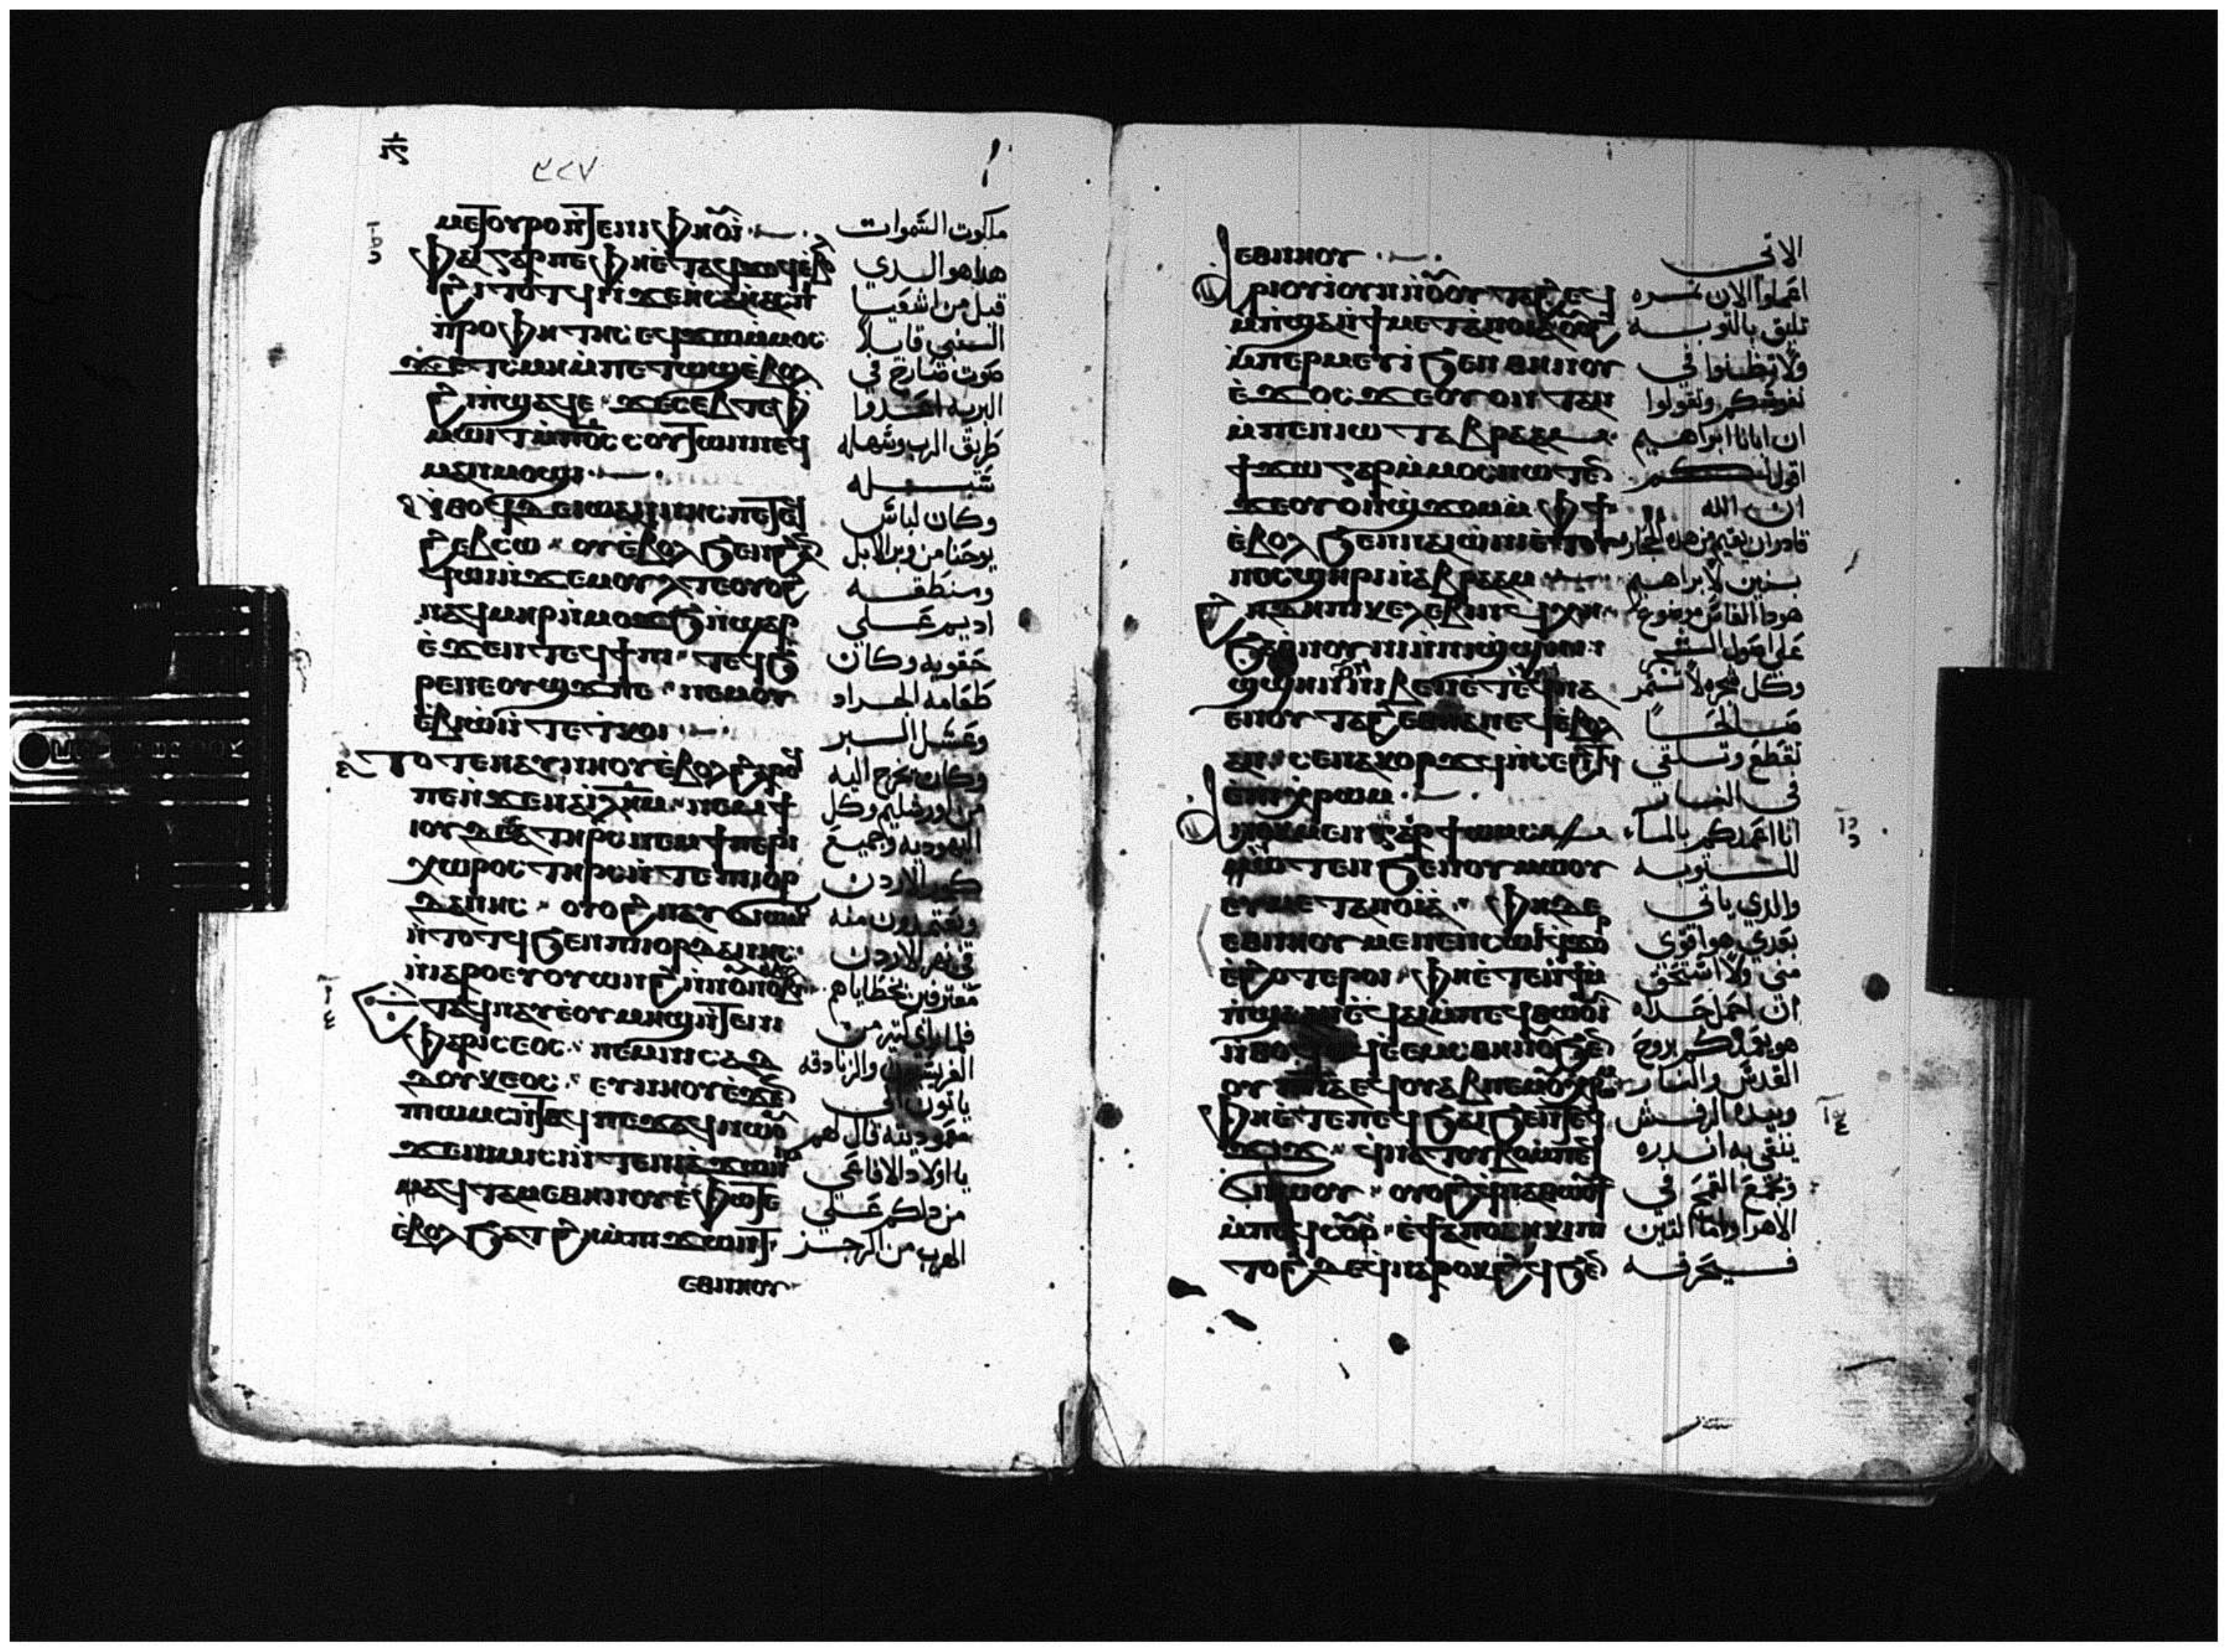 ⲙⲉⲧⲟⲩⲣⲟ ⲛ̀ⲧⲉ ⲛⲓⲫⲏⲟⲩⲓ̀
ⲫⲁⲓ ⲅⲁⲣ ⲡⲉ ⲫⲏⲉ̀ⲧⲁϥϫⲟϥ ⲉ̀ⲃⲟⲗ
ϩⲓⲧⲟⲧϥ ⲛ̀ⲏⲥⲁⲏⲁⲥ ⲡⲓ
ⲡⲣⲟⲫⲏⲧⲏⲥ ⲉϥϫⲱ ⲙ̀ⲙⲟⲥ
ϫⲉ ⲧ̀ⲥⲙⲏ ⲙ̀ⲡⲉⲧⲱϣ ⲉ̀ⲃⲟⲗ
ϩⲓ ⲡ̀ϣⲁϥⲉ ϫⲉ ⲥⲉⲃⲧⲉ ⲫ
ⲙⲱⲓⲧ ⲙ̀ⲡϭⲥ ⲥⲟⲩⲧⲱⲛ ⲛⲉϥ
ⲙⲁⲛⲙⲟϣⲓ
ⲛ̀ⲑⲟϥ ⲇⲉ ⲓⲱⲁⲛⲛⲏⲥ ⲛⲉ ⲧⲉϥ
ϩⲉⲃⲥⲱ ⲟⲩⲉ̀ⲃⲟⲗ ϧⲉⲛ ϩⲁⲛ
ϥⲱⲓ ⲛ̀ϫⲉⲙⲟⲩⲗ ⲧⲉ ⲟⲩⲟϩ
ⲛⲁϥⲙⲏⲣ ⲛ̀ⲙⲟϫϧ ⲛ̀ϣⲁⲣ
ⲉ̀ϫⲉⲛ ⲧⲉϥϯⲡⲓ ⲧⲉϥϧ
ⲣⲉ ⲛⲉ ⲟⲩϣϫⲉ ⲡⲉ ⲛⲉⲙ ⲟⲩ
ⲉ̀ⲃⲓⲱ ⲛ̀ⲧⲉ ⲧ̀ⲕⲟⲓ
ⲧⲟⲧⲉ ⲛⲁⲩⲛⲏⲟⲩ ⲉ̀ⲃⲟⲗ ϩⲁⲣⲟϥ
ⲡⲉ ⲛ̀ϫⲉ ⲛⲁ ⲓⲗⲏⲙ ⲛⲉⲙ ϯ
ⲓⲟⲩⲇⲉⲁ ⲧⲏⲣⲥ ⲛⲉⲙ ϯⲡⲉⲣⲓ
ⲭⲱⲣⲟⲥ ⲧⲏⲣⲥ ⲛ̀ⲧⲉ ⲡⲓⲓⲟⲣ
ⲇⲁⲛⲏⲥ ⲟⲩⲟϩ ⲛⲁⲩϭⲓⲱⲙⲥ
ⲛ̀ⲧⲟⲧϥ ϧⲉⲛ ⲡⲓⲓⲟⲣⲇⲁⲛⲏⲥ
ⲫⲁⲣⲓⲥⲉⲟⲥ ⲛⲉⲙ ⲛⲓⲥⲁⲇ
ⲇⲟⲩⲕⲉⲟⲥ ⲉⲩⲛⲏⲟⲩ ⲉ̀ϫⲉⲛ
ⲡⲓⲱⲙⲥ ⲛ̀ⲧⲁϥ ⲡⲉϫⲁϥ ⲛⲱⲟⲩ
ϫⲉ ⲛⲓⲙⲓⲥⲓ ⲛ̀ⲧⲉ ⲛⲓⲁϫⲱ ⲛⲓⲙ
ⲡⲉⲧⲁϥⲧⲁⲙⲉ ⲑⲏⲛⲟⲩ ⲉ̀ⲫⲱⲧ
ⲉ̀ⲃⲟⲗ ϧⲁⲧϩⲏ ⲙ̀ⲡⲓϫⲱⲛⲧ
ⲉⲑⲛⲏⲟⲩ
ملكوت السموات
هدا هو الدي
قيل من اشعيا
النبي قايلا
صوت صارخ في
البريه اعدوا
طريق الرب وسهله
سبله
وكان لباس
يوحنا من وبر الابل
ومنطقه
اديم علي
حقويه وكان
طعامه الجراد
وعسل البر
وكان يخرج اليه
من اورشليم وكل
اليهوديه وجميع
كور الاردن
ويعتمدون منه
في نهر الاردن
معترفين بخطاياهم
فلما راي كثير من
والزنادقه
ياتون الي
معموديته قال لهم
يا اولاد الافاعي
من دلكم علي
الهرب من الرجز
ⲉⲑⲛⲏⲟⲩ
ⲁⲣⲓⲟⲩⲓ̀ ⲟⲩⲛ ⲛ̀ⲟⲩⲟⲩⲧⲁϩ ⲉϥ
ⲙ̀ⲡϣⲁ ⲛ̀ϯⲙⲉⲧⲁⲛⲟⲓⲁ
ⲙ̀ⲡⲉⲣⲙⲉⲩⲓ̀ ϧⲉⲛ ⲑⲏⲛⲟⲩ
ⲉ̀ϫⲟⲥ ϫⲉ ⲟⲩⲟⲛⲧⲁⲛ
ⲙ̀ⲡⲉⲛⲓⲱⲧ ⲁⲃⲣⲁⲁⲙ
ϯϫⲱ ⲅⲁⲣ ⲙ̀ⲙⲟⲥ ⲛⲱⲧⲉⲛ
ϫⲉ ⲟⲩⲟⲛ ϣϫⲟⲙ ⲙ̀ⲫϯ
ⲉ̀ⲃⲟⲗ ϧⲉⲛ ⲛⲁⲓⲱ̀ⲛⲓ ⲉ̀ⲧⲟⲩⲛⲟⲥ
ϣⲏⲣⲓ ⲛ̀ⲁⲃⲣⲁⲁⲙ
ϩⲏⲇⲏ ⲡⲓⲕⲉⲗⲉⲃⲓⲛ ϥⲭⲏ
ϧⲁ ⲑⲛⲟⲩⲛⲓ ⲛ̀ⲛⲓϣϣⲏⲛ
ϣϣⲏⲛ ⲛⲓⲃⲉⲛ ⲉⲧⲉ ⲛ̀ϥⲛⲁ
ⲉⲛ ⲟⲩⲧⲁϩ ⲉⲑⲛⲁⲛⲉϥ ⲉ̀ⲃⲟⲗ
ⲁⲛ ⲥⲉⲛⲁⲕⲟⲣϫϥ ⲛ̀ⲥⲉϩⲓⲧϥ
ⲉ̀ⲡⲓⲭⲣⲱⲙ
ⲁⲛⲟⲕ ⲙⲉⲛ ⲅⲁⲣ ϯⲱⲙⲥ
ⲙ̀ⲙⲱⲧⲉⲛ ϧⲉⲛ ⲟⲩⲙⲱⲟⲩ
ⲉⲩⲙⲉⲧⲁⲛⲟⲓⲁ ⲫⲏ ⲇⲉ
ⲉⲑⲛⲏⲟⲩ ⲙⲉⲛⲉⲛⲥⲱⲓ ϥϫⲟⲣ
ⲉ̀ϩⲟⲧⲉⲣⲟⲓ ⲫⲏⲉ̀ⲧⲉ ⲛ̀ϯⲙ
ⲡϣⲁ ⲁⲛ ⲉ̀ϥⲁⲓ ⲙ̀ⲡⲉϥⲑⲱⲟⲩⲓ
ⲫⲏⲉ̀ⲧⲉ ⲡⲉϥϧⲁⲓ ϧⲉⲛ ⲧⲉϥ
ϫⲓϫ ϥⲛⲁⲧⲟⲩⲃⲟ ⲙ̀ⲡⲉϥ
ϭⲛⲱⲟⲩ ⲟⲩⲟϩ
ⲙ̀ⲡⲉϥⲥⲟⲩⲟ ⲉ̀ϯⲁⲡⲟⲑⲏⲕⲏ ⲡⲓ
ⲧⲟϩ ⲇⲉ ϥⲛⲁⲣⲟⲕϩϥ ϧⲉⲛ
الاتي
اعملوا الان ثمره
تليق بالتوبه
ولا تظنوا في
نفوسكم وتقولوا
ان ابانا ابراهيم
اقول لكم
ان الله
قادر ان يقيم من هده الحجاره
بنين لابراهيم
هودا الفاس موضوع
علي اصول الشجر
وكل شجره لا تثمر
صالحا
تقطع وتلقي
في النار
انا اعمدكم بالماء
للتوبه
والدي ياتي
بعدي هو اقوي
مني ولا استحق
ان احمل حداه
هو يعمدكم بروح
القدس والنار
وبيده الرفش
ينقي به اندره
ويجمع القمح في
الاهرا واما التبن
فيحرقه